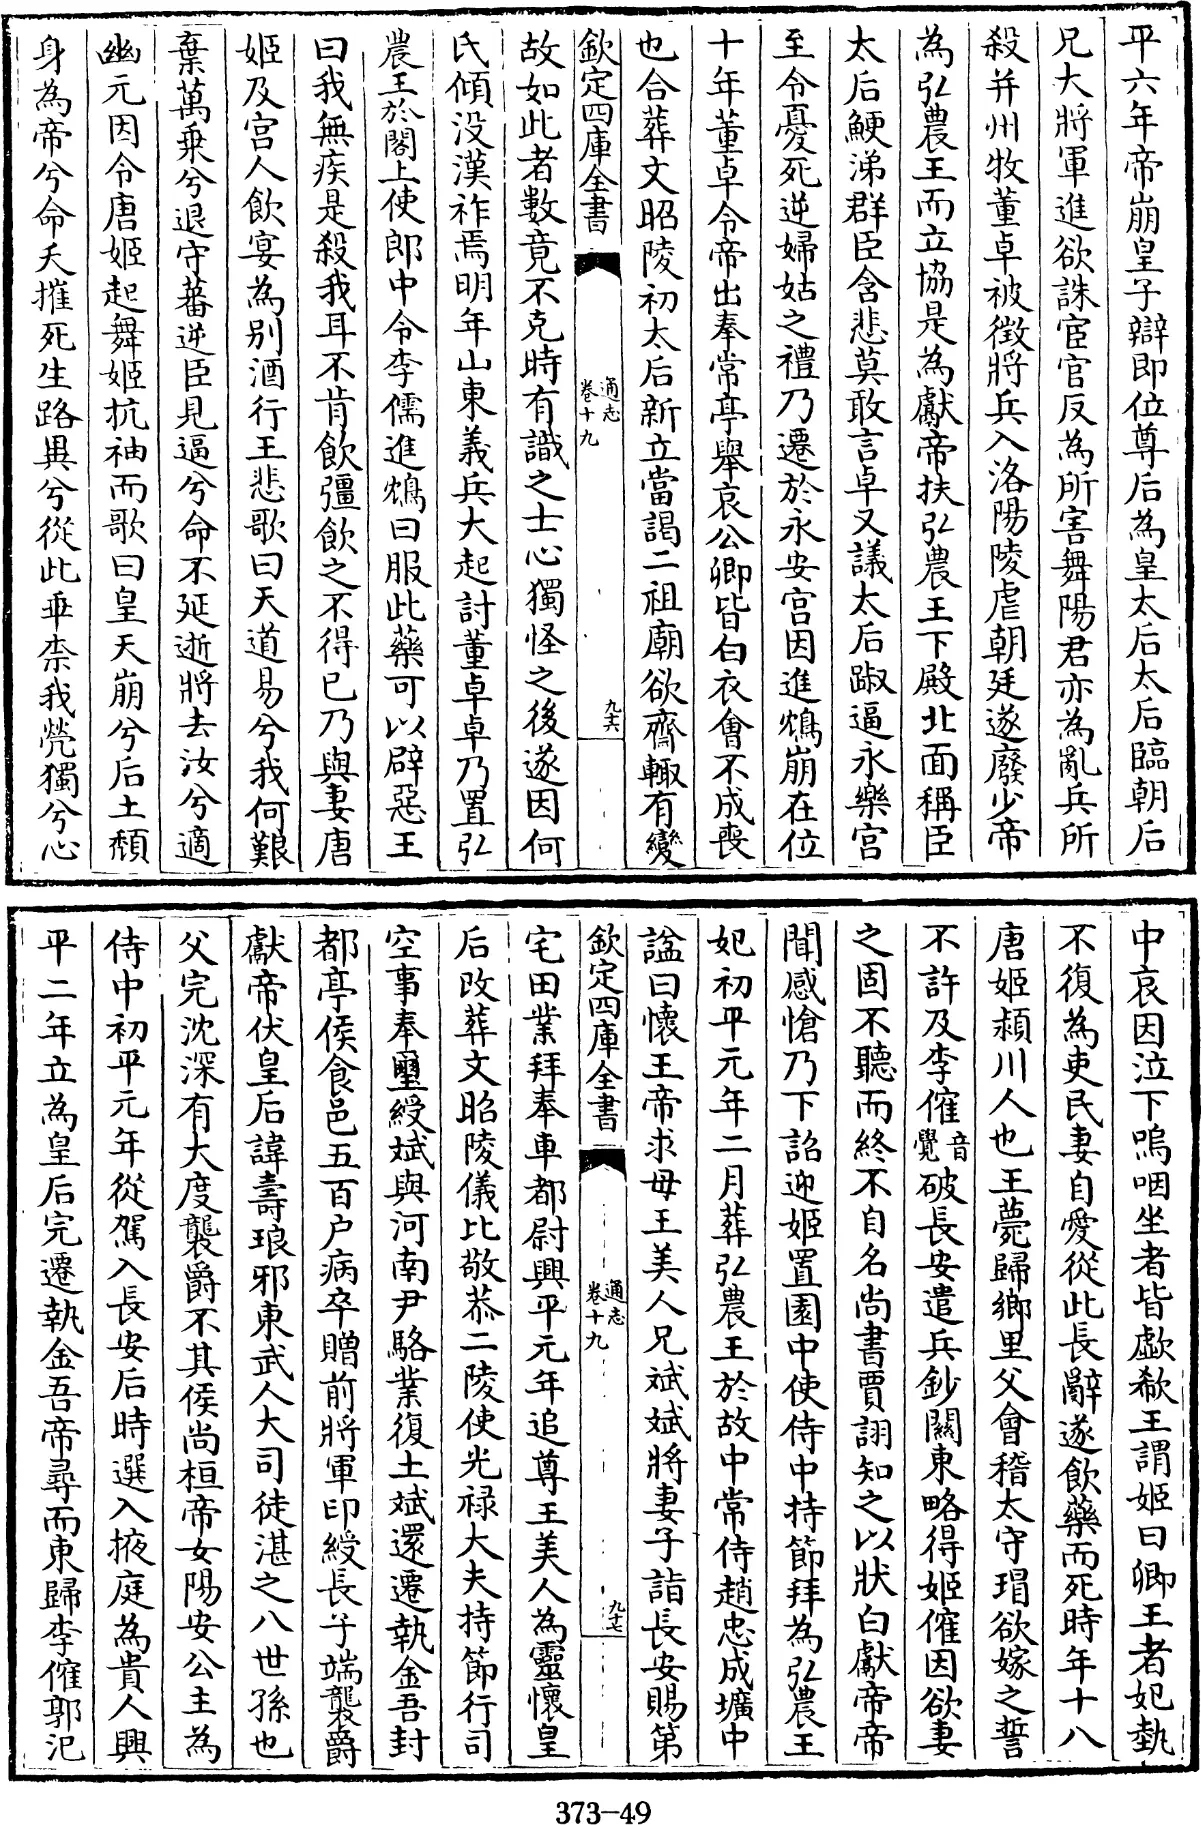 平六年帝崩皇子辯即位尊后為皇太后太后臨朝后
兄大將軍進欲誅宦官反為所害舞陽君亦為亂兵所
殺并州牧董卓被徵將兵入洛陽陵虐朝廷遂廢少帝
為弘農王而立協是為獻帝扶弘農王下殿北面稱臣
太后鯁涕群臣含悲莫敢言卓又議太后踧逼永樂宮
至令憂死逆婦姑之禮乃遷於永安宮因進鴆崩在位
十年董卓令帝出奉常亭舉哀公卿皆白衣會不成喪
也合葬文昭陵初太后新立當謁二祖廟欲齋輙有變
欽定四庫全書
通志
卷十九
九十六
故如此者數竟不克時有識之士心獨怪之後遂因何
氏傾没漢祚焉明年山東義兵大起討董卓卓乃置弘
農王於閣上使郎中令李儒進鴆曰服此藥可以辟惡王
曰我無疾是殺我耳不肯飲彊飲之不得已乃與妻唐
姬及宮人飲宴為别酒行王悲歌曰天道易兮我何艱
棄萬乗兮退守蕃逆臣見逼兮命不延逝將去汝兮適
幽元因令唐姬起舞姬抗袖而歌曰皇天崩兮后土頽
身為帝兮命夭摧死生路異兮從此乖柰我煢獨兮心
中哀因泣下嗚咽坐者皆歔欷王謂姬曰卿王者妃埶
不復為吏民妻自愛從此長辭遂飲藥而死時年十八
唐姬潁川人也王薨歸鄉里父會稽太守瑁欲嫁之誓
不許及李傕音覺破長安遣兵鈔關東略得姬傕因欲妻
之固不聽而終不自名尚書賈詡知之以狀白獻帝帝
聞感愴乃下詔迎姬置園中使侍中持節拜為弘農王
妃初平元年二月葬弘農王於故中常侍趙忠成壙中
諡曰懷王帝求母王美人兄斌斌將妻子詣長安賜第
欽定四庫全書
通志
卷十九
九十七
宅田業拜奉車都尉興平元年追尊王美人為靈懷皇
后改葬文昭陵儀比敬恭二陵使光禄大夫持節行司
空事奉璽綬斌與河南尹駱業復土斌還遷執金吾封
都亭侯食邑五百户病卒贈前將軍印綬長子端襲爵
獻帝伏皇后諱壽琅邪東武人大司徒湛之八世孫也
父完沈深有大度襲爵不其侯尚桓帝女陽安公主為
侍中初平元年從駕入長安后時選入掖庭為貴人興
平二年立為皇后完遷執金吾帝尋而東歸李傕郭汜
373-49